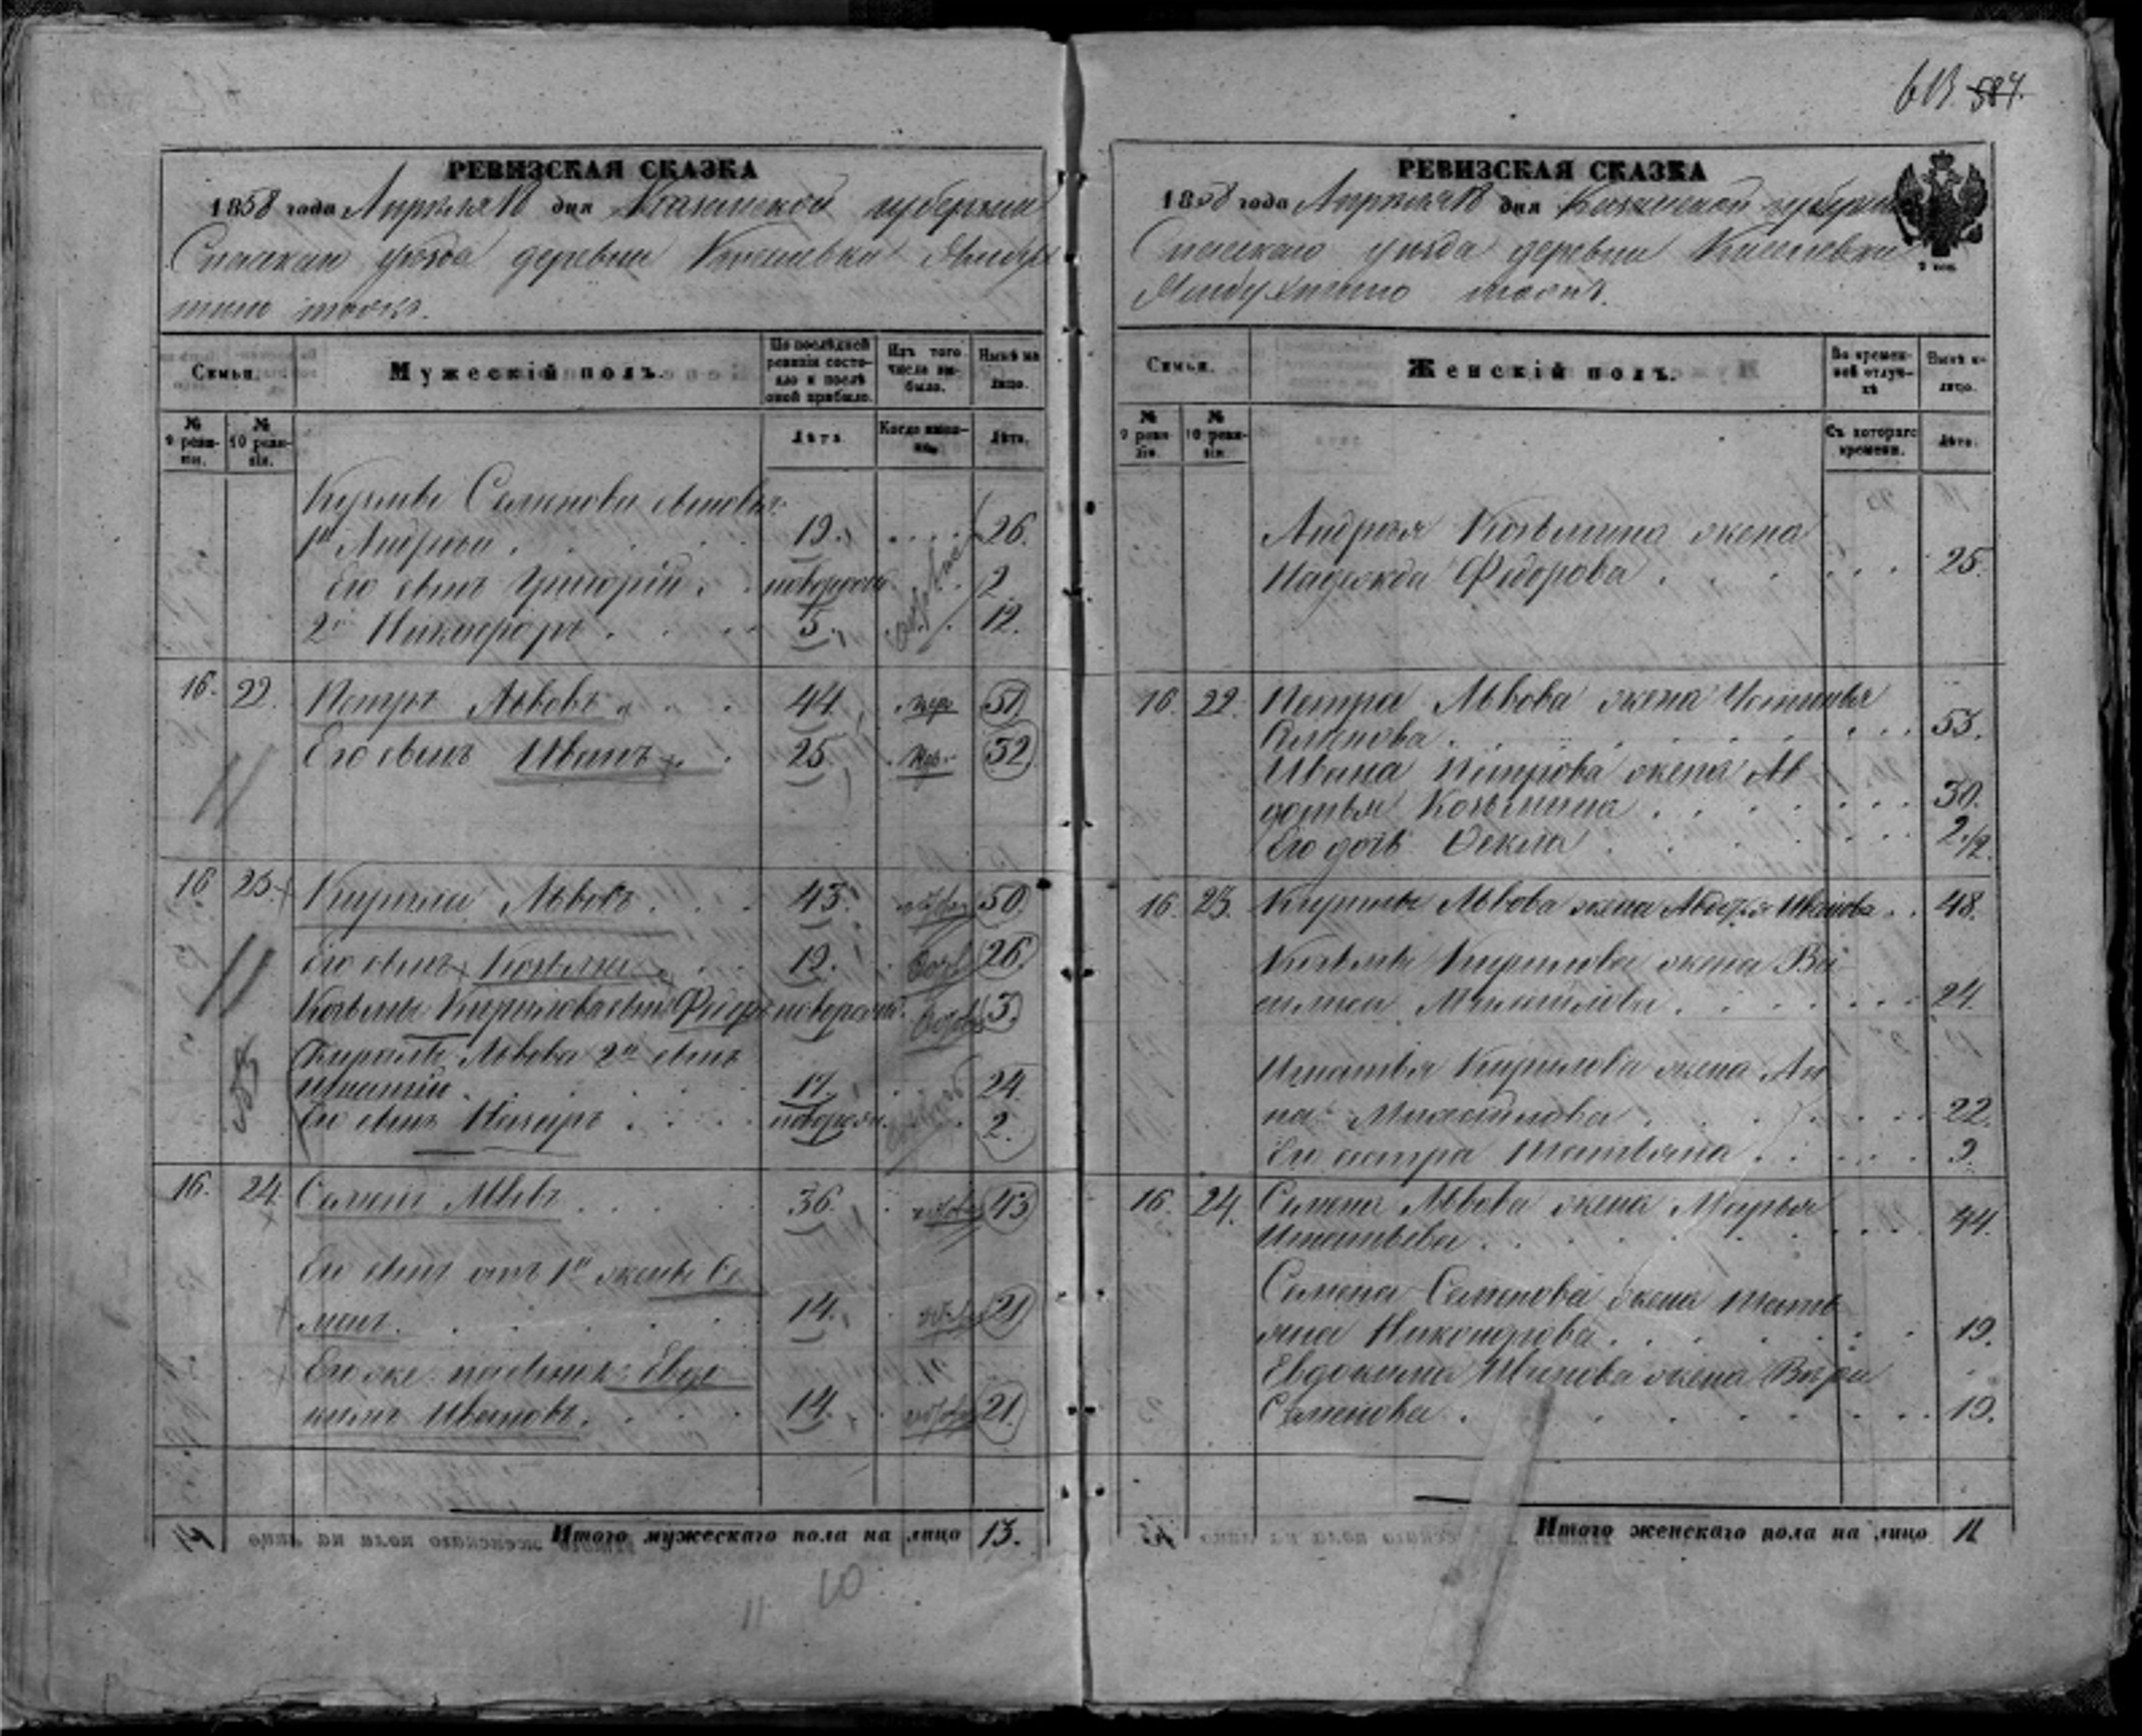 613. 584.
РЕВИЗСКАЯ СКАЗКА
1858 года Апреля 18 дня Казанской губернии
Спаскаго уезда деревни Киселевка
тоже.
Семьи.
Мужескій полъ.
По последней ревизіи состояло и послѣ оной прибыло.
Изъ того числа выбыло.
Нынѣ на лицо.
№ 9 ревизіи.
№ 10 ревизіи.
Лѣта
Когда именно.
Лѣта.
Семенова
1й Андрей . 19. 26.
Его сынъ Григорій . новорожд. 2.
2й Никифоръ . 5. 12.
16. 22. Петръ Львовъ 44. 51
Его сынъ Иванъ 25. 32
16 23. Кирила Львовъ 43. 50.
Его сынъ Козьма 19. 26.
Козьмы Кирилова сынъ новорожд. 3.
Кирилы Львова 2й сынъ
Игнатій 17. 24.
Его сынъ новорож. 2.
16. 24. Семенъ Львовъ 36. 43
Его сынъ отъ 1й жены Се
менъ. 14. 21
Его же пасынокъ Евдо
кимъ Ивановъ. 14. 21.
Итого мужескаго пола на лицо 13.
11 10
РЕВИЗСКАЯ СКАЗКА
1858 года Апреля 18 дня Казанской губерніи
Спасскаго уезда деревни Киселевки
Семьи.
Женскій полъ.
Во временной отлучкѣ
Нынѣ на лицо.
№ 9 ревизіи.
№ 10 ревизіи.
Съ котораго времени.
Лѣта.
Андрея Козьмина жена
Надежда Федорова . 25.
16. 22. Петра Львова жена Устинья
53.
Ивана Петрова жена Ав
дотья Козьмина 30.
Его дочь Фекла 2 1/2.
16. 23. Кирилы Львова жена Авдотья Иванова 48.
Козьмы Кирилова жена Ва
силиса 24.
Игнатья Кирилова жена Ан
на 22.
Его сестра Татьяна 9.
16. 24. Семена Львова жена Марья
Игнатьева 44.
Семена Семенова жена Татья
на 19.
Евдокима Иванова жена
Семенова 19.
Итого женскаго пола на лицо 11